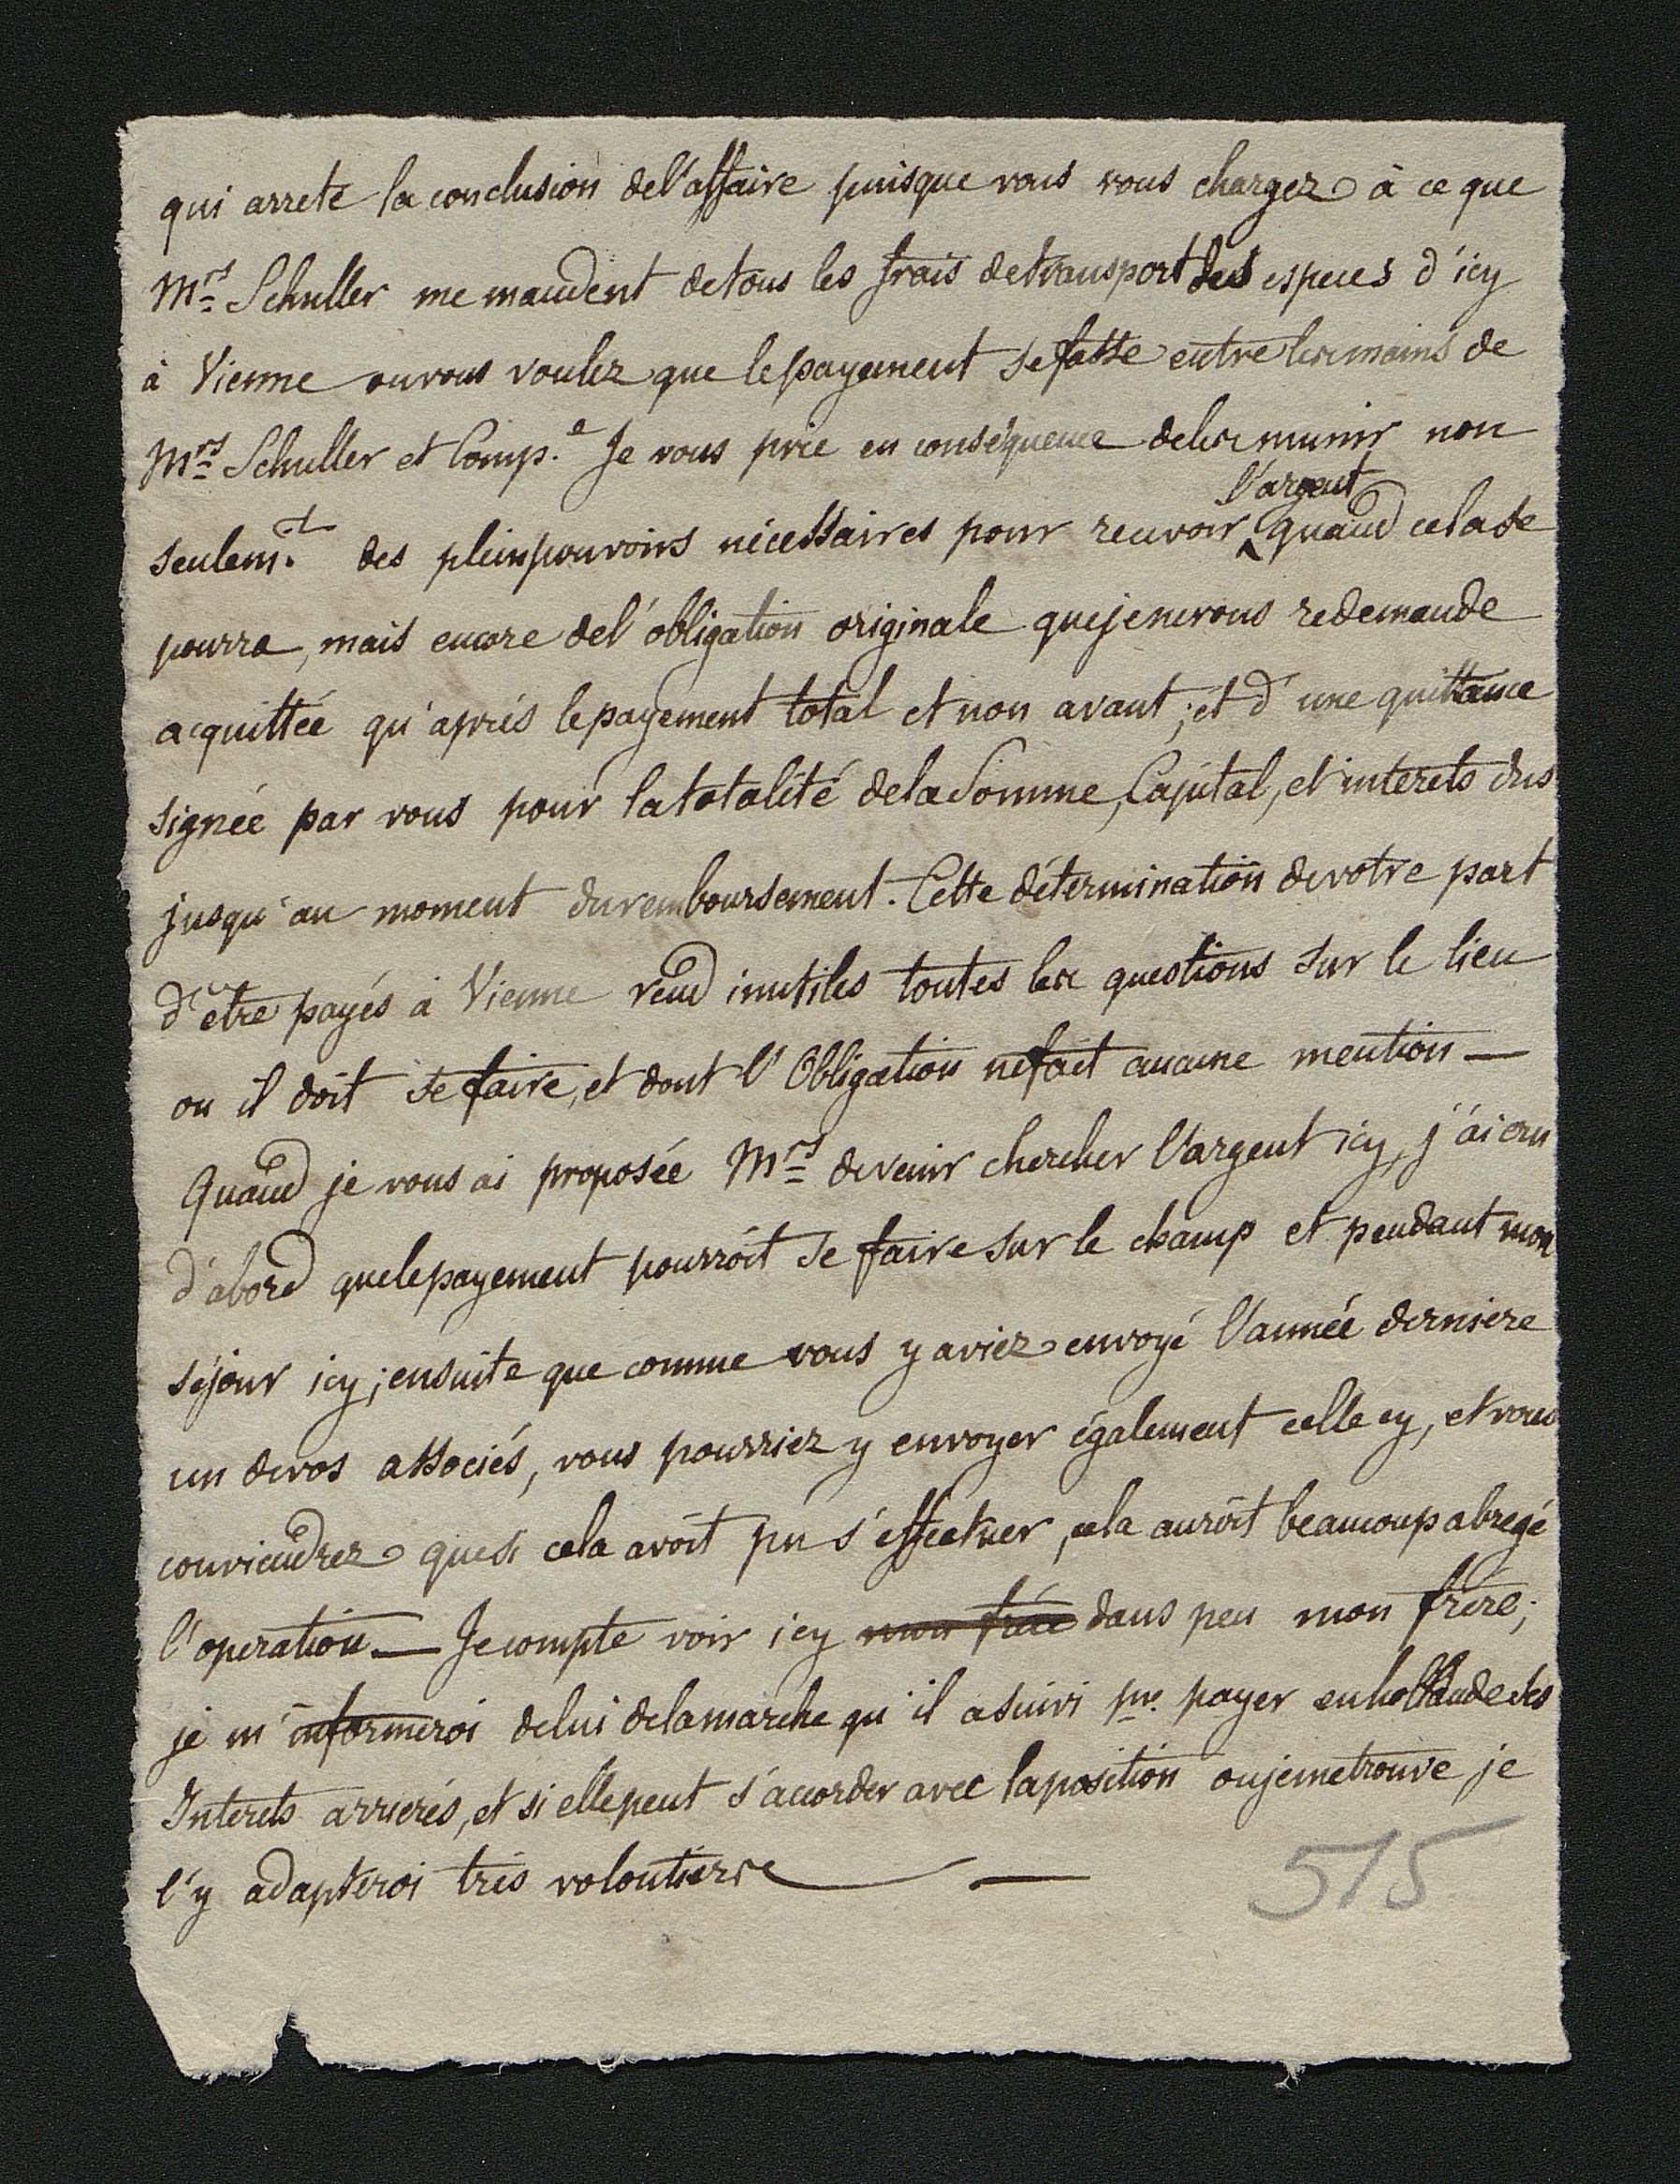 qui arrete la conclusion de l'affaire puisque vous vous chargez à ce que
Mrs Schuller me mandent de tous les frais de transport des especes d'icy
à Vienne ou vous voulez que le payement se fasse entre les mains de
Mrs Schuller et Comp.e Je vous prie en conséquence de les munir non
seulem.t des pleinpouvoirs nécessaires pour recevoir l'argent quand cela se
pourra, mais encore de l'obligation originale que je ne vous redemande
acquittée qu'après le payement total et non avant; et d'une quittance
signée par vous pour la totalité de la Somme, Capital, et interets dus
jusqu'au moment du remboursement. Cette détermination de votre part
d'etre payés à Vienne rend inutiles toutes les questions sur le lieu
ou il doit se faire, et dont l'Obligation ne fait aucune mention —
Quand je vous ai proposée Mrs de venir chercher l'argent icy, j'ai cru
d'abord que le payement pourroit se faire sur le champ et pendant mon
séjour icy; ensuite que comme vous y aviez envoyé l'année derniere
un de vos associés, vous pourriez y envoyer également celle cy, et vous
conviendrez que si cela avoit pu s'effectuer, cela auroit beaucoup abregé
l'operation — Je compte voir icy mon frére dans peu mon frére;
je m'informeroi de lui de la marche qu'il a suivi pr. payer en hollande des
Interets arrierés, et si elle peut s'accorder avec la position ou je me trouve je
l'y adapteroi très volontiers —
515